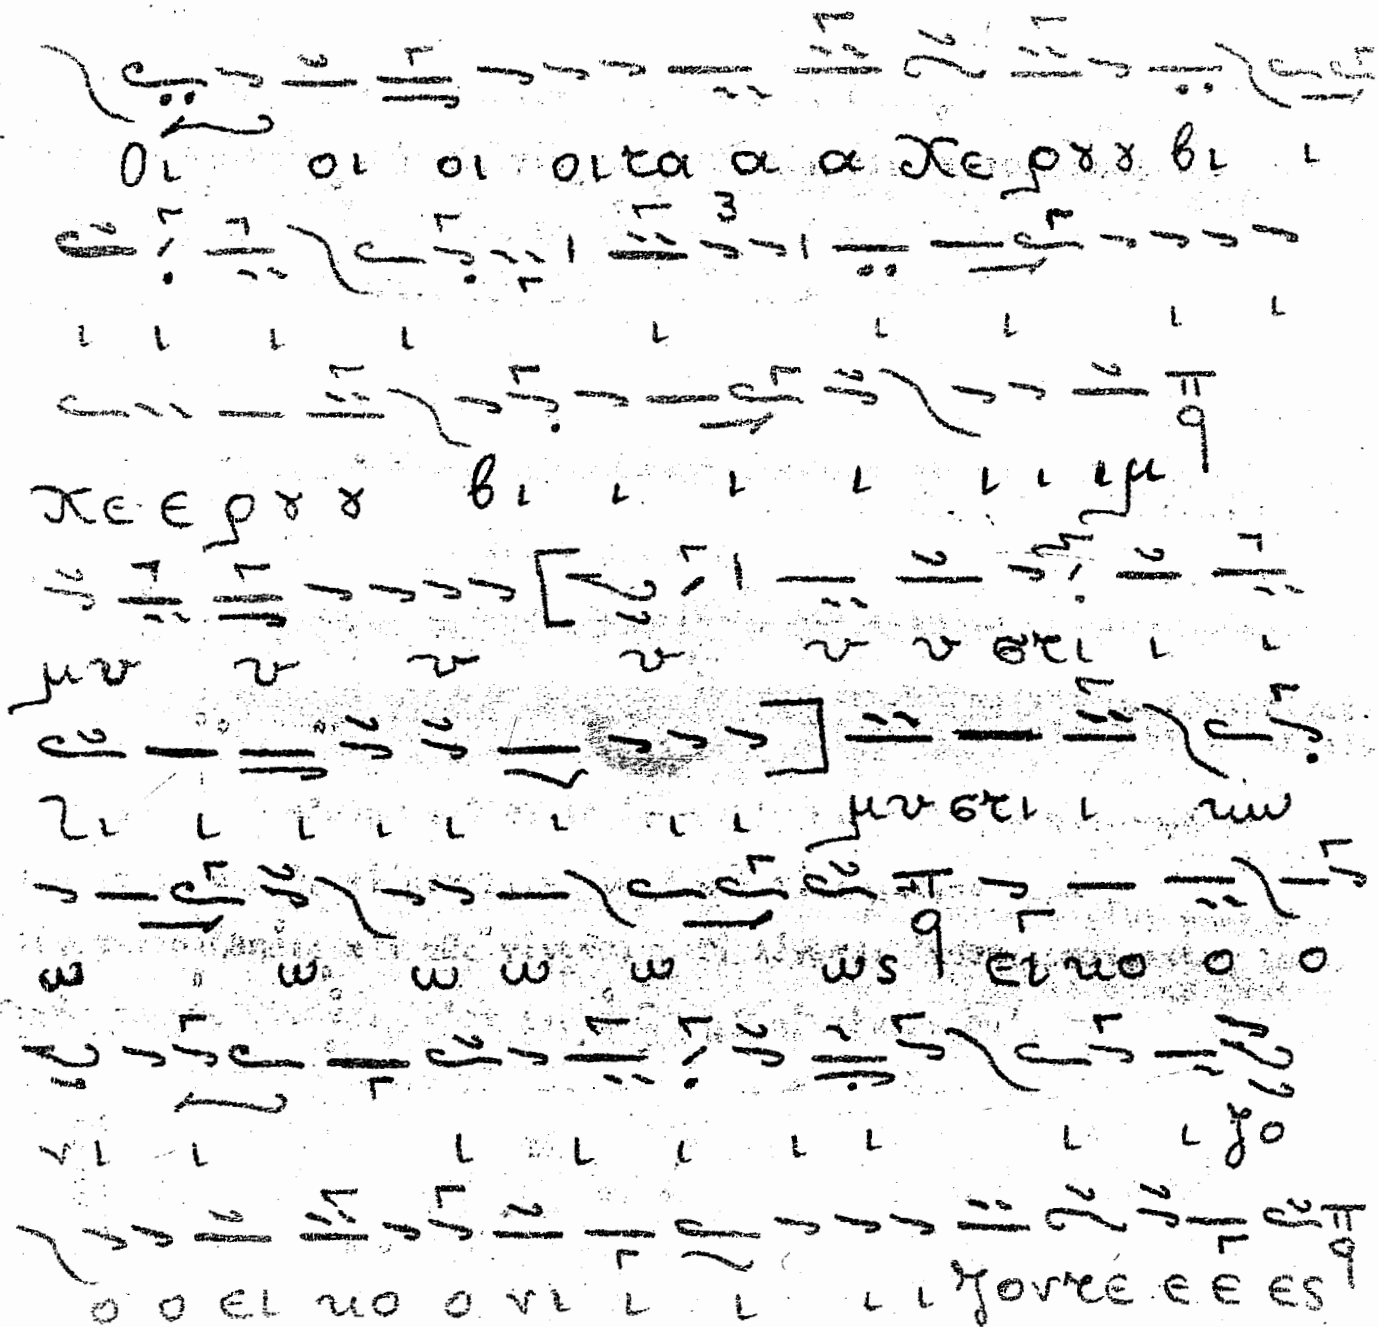 οι οι οι οιτα α α Χε ρȣ ȣ βι ι
ι ι ι ι ι ι ι ι ι
Χε ε ρȣ ȣ βι ι ι ι ι ι ι ιμ
μυ υ υ υ υ υ στι ι ι
ι ι ι ι ι ι ι ι μυστι ι κω
ω ω ω ω ω ως εικο ο ο
νι ι ι ι ι ι ι ι ι ζο
ο ο ει κο ο νι ι ι ι ι ζοντε ε ε ες